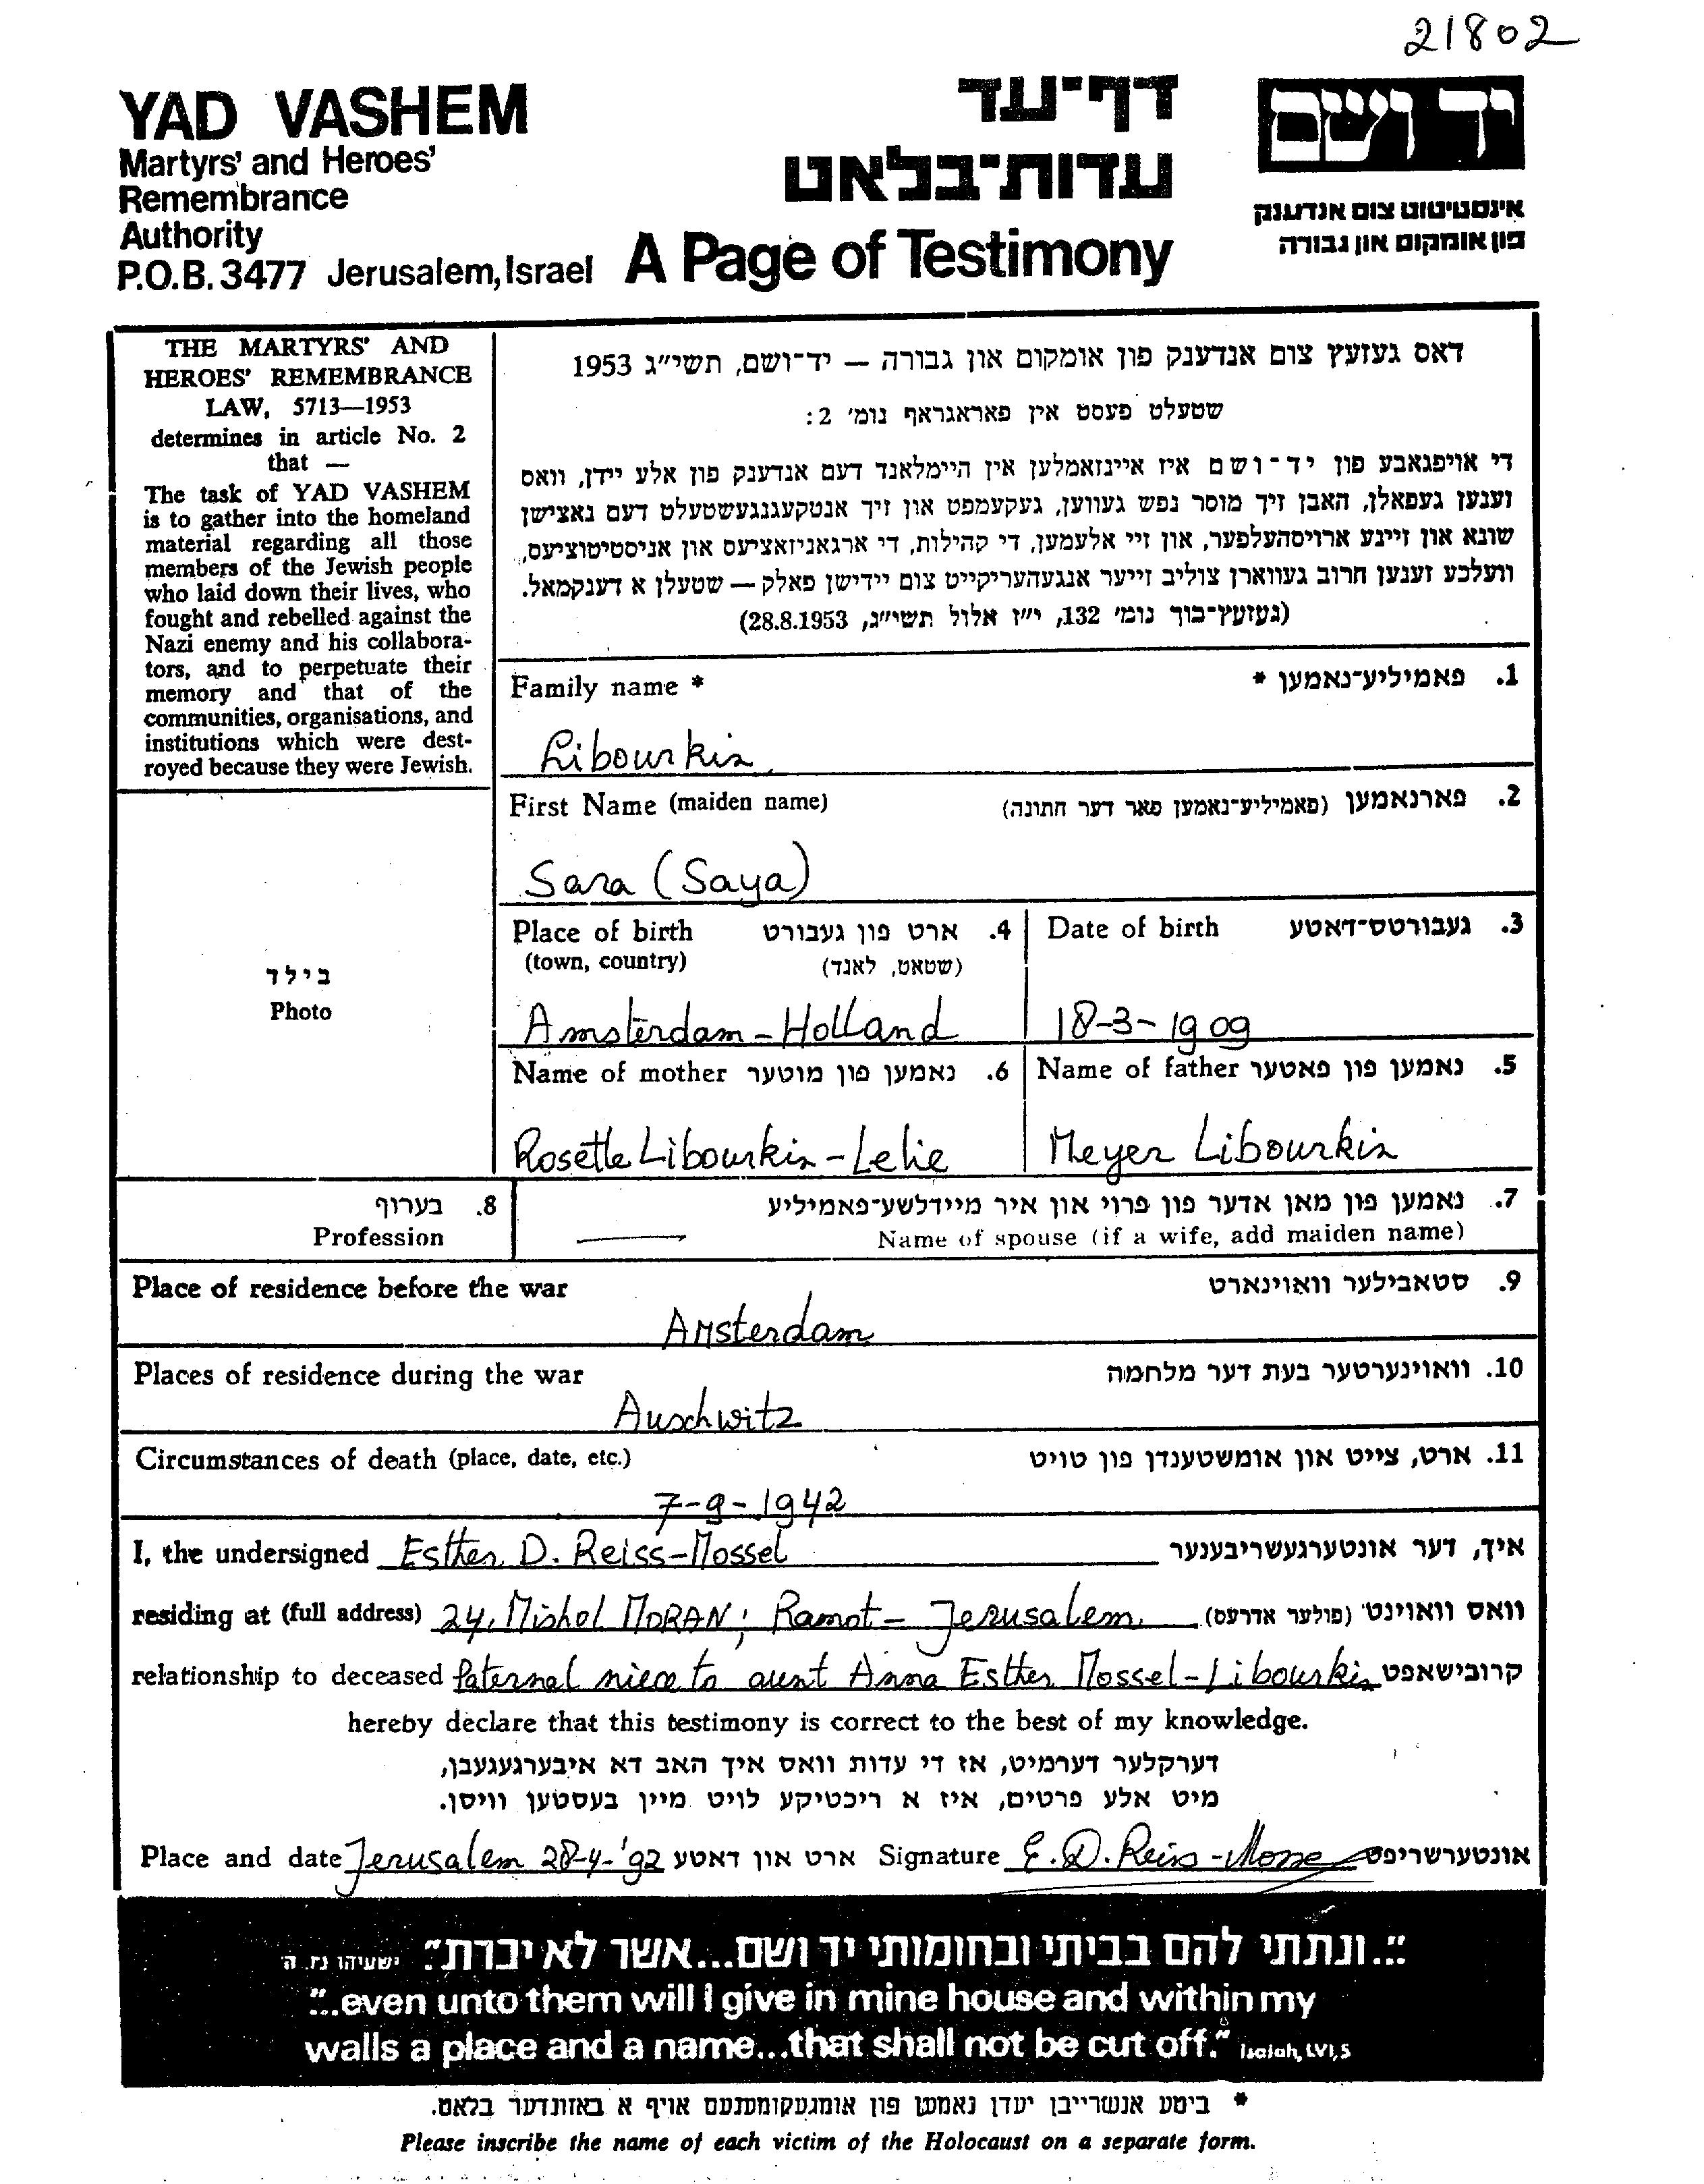 21802
YAD VASHEM
Martyrs' and Heroes'
Remembrance
Authority
P.O.B. 3477 Jerusalem, Israel
דף־עד
עדות־בלאט
A Page of Testimony
יד ושם
אינסטיטוט צום אנדענק
פון אומקום און גבורה
THE MARTYRS' AND
HEROES' REMEMBRANCE
LAW, 5713—1953
determines in article No. 2
that —
The task of YAD VASHEM
is to gather into the homeland
material regarding all those
members of the Jewish people
who laid down their lives, who
fought and rebelled against the
Nazi enemy and his collabora-
tors, and to perpetuate their
memory and that of the
communities, organisations, and
institutions which were dest-
royed because they were Jewish.
דאס געזעץ צום אנדענק פון אומקום און גבורה — יד־ושם, תשי״ג 1953
שטעלט פעסט אין פאראגראף נומ׳ 2:
די אויפגאבע פון יד־ושם איז איינזאמלען אין היימלאנד דעם אנדענק פון אלע יידן, וואס
זענען געפאלן, האבן זיך מוסר נפש געווען, געקעמפט און זיך אנטקעגנגעשטעלט דעם נאצישן
שונא און זיינע ארויסהעלפער, און זיי אלעמען, די קהילות, די ארגאניזאציעס און אניסטיטוציעס,
וועלכע זענען חרוב געווארן צוליב זייער אנגעהעריקייט צום יידישן פאלק — שטעלן א דענקמאל.
(געזעץ־בוך נומ׳ 132, י״ז אלול תשי״ג, 28.8.1953)
Family name * 1. פאמיליע־נאמען *
Libourkin
First Name (maiden name) 2. פארנאמען (פאמיליע־נאמען פאר דער חתונה)
Sara (Saya)
Place of birth 4. ארט פון געבורט
(town, country) (שטאט, לאנד)
Amsterdam - Holland
Date of birth 3. געבורטס־דאטע
18-3-1909
Name of mother 6. נאמען פון מוטער
Rosette Libourkin - Lelie
Name of father 5. נאמען פון פאטער
Meyer Libourkin
בילד
Photo
8. בערוף
Profession
7. נאמען פון מאן אדער פון פרוי און איר מיידלשע־פאמיליע
Name of spouse (if a wife, add maiden name)
Place of residence before the war 9. סטאבילער וואוינארט
Amsterdam
Places of residence during the war 10. וואוינערטער בעת דער מלחמה
Auschwitz
Circumstances of death (place, date, etc.) 11. ארט, צייט און אומשטענדן פון טויט
7-9-1942
I, the undersigned Esther D. Reiss-Mossel איך, דער אונטערגעשריבענער
residing at (full address) 24, Mishol MORAN; Ramot - Jerusalem וואס וואוינט (פולער אדרעס)
relationship to deceased Paternal niece to aunt Anna Esther Mossel-Libourkin קרובישאפט
hereby declare that this testimony is correct to the best of my knowledge.
דערקלער דערמיט, אז די עדות וואס איך האב דא איבערגעגעבן,
מיט אלע פרטים, איז א ריכטיקע לויט מיין בעסטען וויסן.
Place and date Jerusalem 28-4-'92 ארט און דאטע Signature E. D. Reiss-Mossel אונטערשריפט
"...ונתתי להם בביתי ובחומותי יד ושם...אשר לא יכרת" ישעיהו נו, ה
"...even unto them will I give in mine house and within my
walls a place and a name...that shall not be cut off." Isaiah, LVI, 5
* ביטע אנשרייבן יעדן נאמען פון אומגעקומענעם אויף א באזונדער בלאט.
Please inscribe the name of each victim of the Holocaust on a separate form.